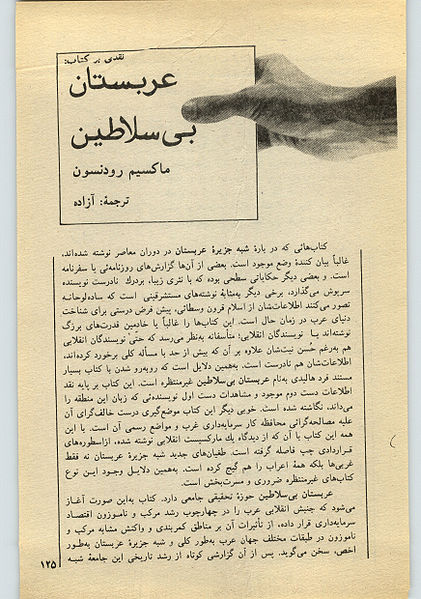 نقدی بر کتاب:
عربستان
بی‌سلاطین
ماکسیم رودنسون
ترجمهٔ: آزاده
کتاب‌هائی که در بارهٔ شبه جزیرهٔ عربستان در دوران معاصر نوشته شده‌اند،
غالباً بیان کنندهٔ وضع موجود است. بعضی از آن‌ها گزارش‌های روزنامه‌ئی یا سفرنامه
است. و بعضی دیگر حکایاتی سطحی بوده که با نثری زیبا، بردرك نادرست نویسنده
سرپوش می‌گذارد، برخی دیگر به‌مثابهٔ نوشته‌های مستشرقینی است که ساده‌لوحانه
تصور می‌کنند اطلاعات‌شان از اسلام قرون وسطائی، پیش فرض درستی برای شناخت
دنیای عرب در زمان حال است. این کتاب‌ها را غالباً یا خادمین قدرت‌های بزرگ
نوشته‌اند یا نویسندگان انقلابی؛ متأسفانه به‌نظر می‌رسد که حتّی نویسندگان انقلابی
هم به‌رغم حُسن نیت‌شان علاوه بر آن که بیش از حد با مسأله کلی برخورد کرده‌اند،
اطلاعات‌شان هم نادرست است. به‌همین دلایل است که روبه‌رو شدن با کتاب بسیار
مستند فرد هالیدی به‌نام عربستان بی‌سلاطین غیرمنتظره است. این کتاب بر پایه نقد
اطلاعات دست دوم موجود و مشاهدات دست اول نویسنده‌ئی که زبان این منطقه را
می‌داند، نگاشته شده است. خوبی دیگر این کتاب موضع‌گیری درست خالف‌گرای آن
علیه مصالحه‌گرائی محافظه کار سرمایه‌داری غرب و مواضع رسمی آن است. با این
همه این کتاب با آن که از دیدگاه یك مارکسیست انقلابی نوشته شده، ازاسطوره‌های
قراردادی چپ فاصله گرفته است. طغیان‌های جدید شبه جزیرهٔ عربستان نه فقط
غربی‌ها بلکه همهٔ اعراب را هم گیج کرده است. به‌همین دلایل وجود این نوع
کتاب‌های غیرمنتظره ضروری و مسرت‌بخش است.
عربستان بی‌سلاطین حوزهٔ تحقیقی جامعی دارد. کتاب به‌این صورت آغاز
می‌شود که جنبش انقلابی عرب را در چهارچوب رشد مرکب و ناموزون اقتصاد
سرمایه‌داری قرار داده، از تأثیرات آن بر مناطق کمربندی و واکنش مشابه مرکب و
ناموزون در طبقات مختلف جهان عرب به‌طور کلی و شبه جزیرهٔ عربستان به‌طور
اخص، سخن می‌گوید. پس از آن گزارشی کوتاه از رشد تاریخی این جامعهٔ شبه
۱۲۵